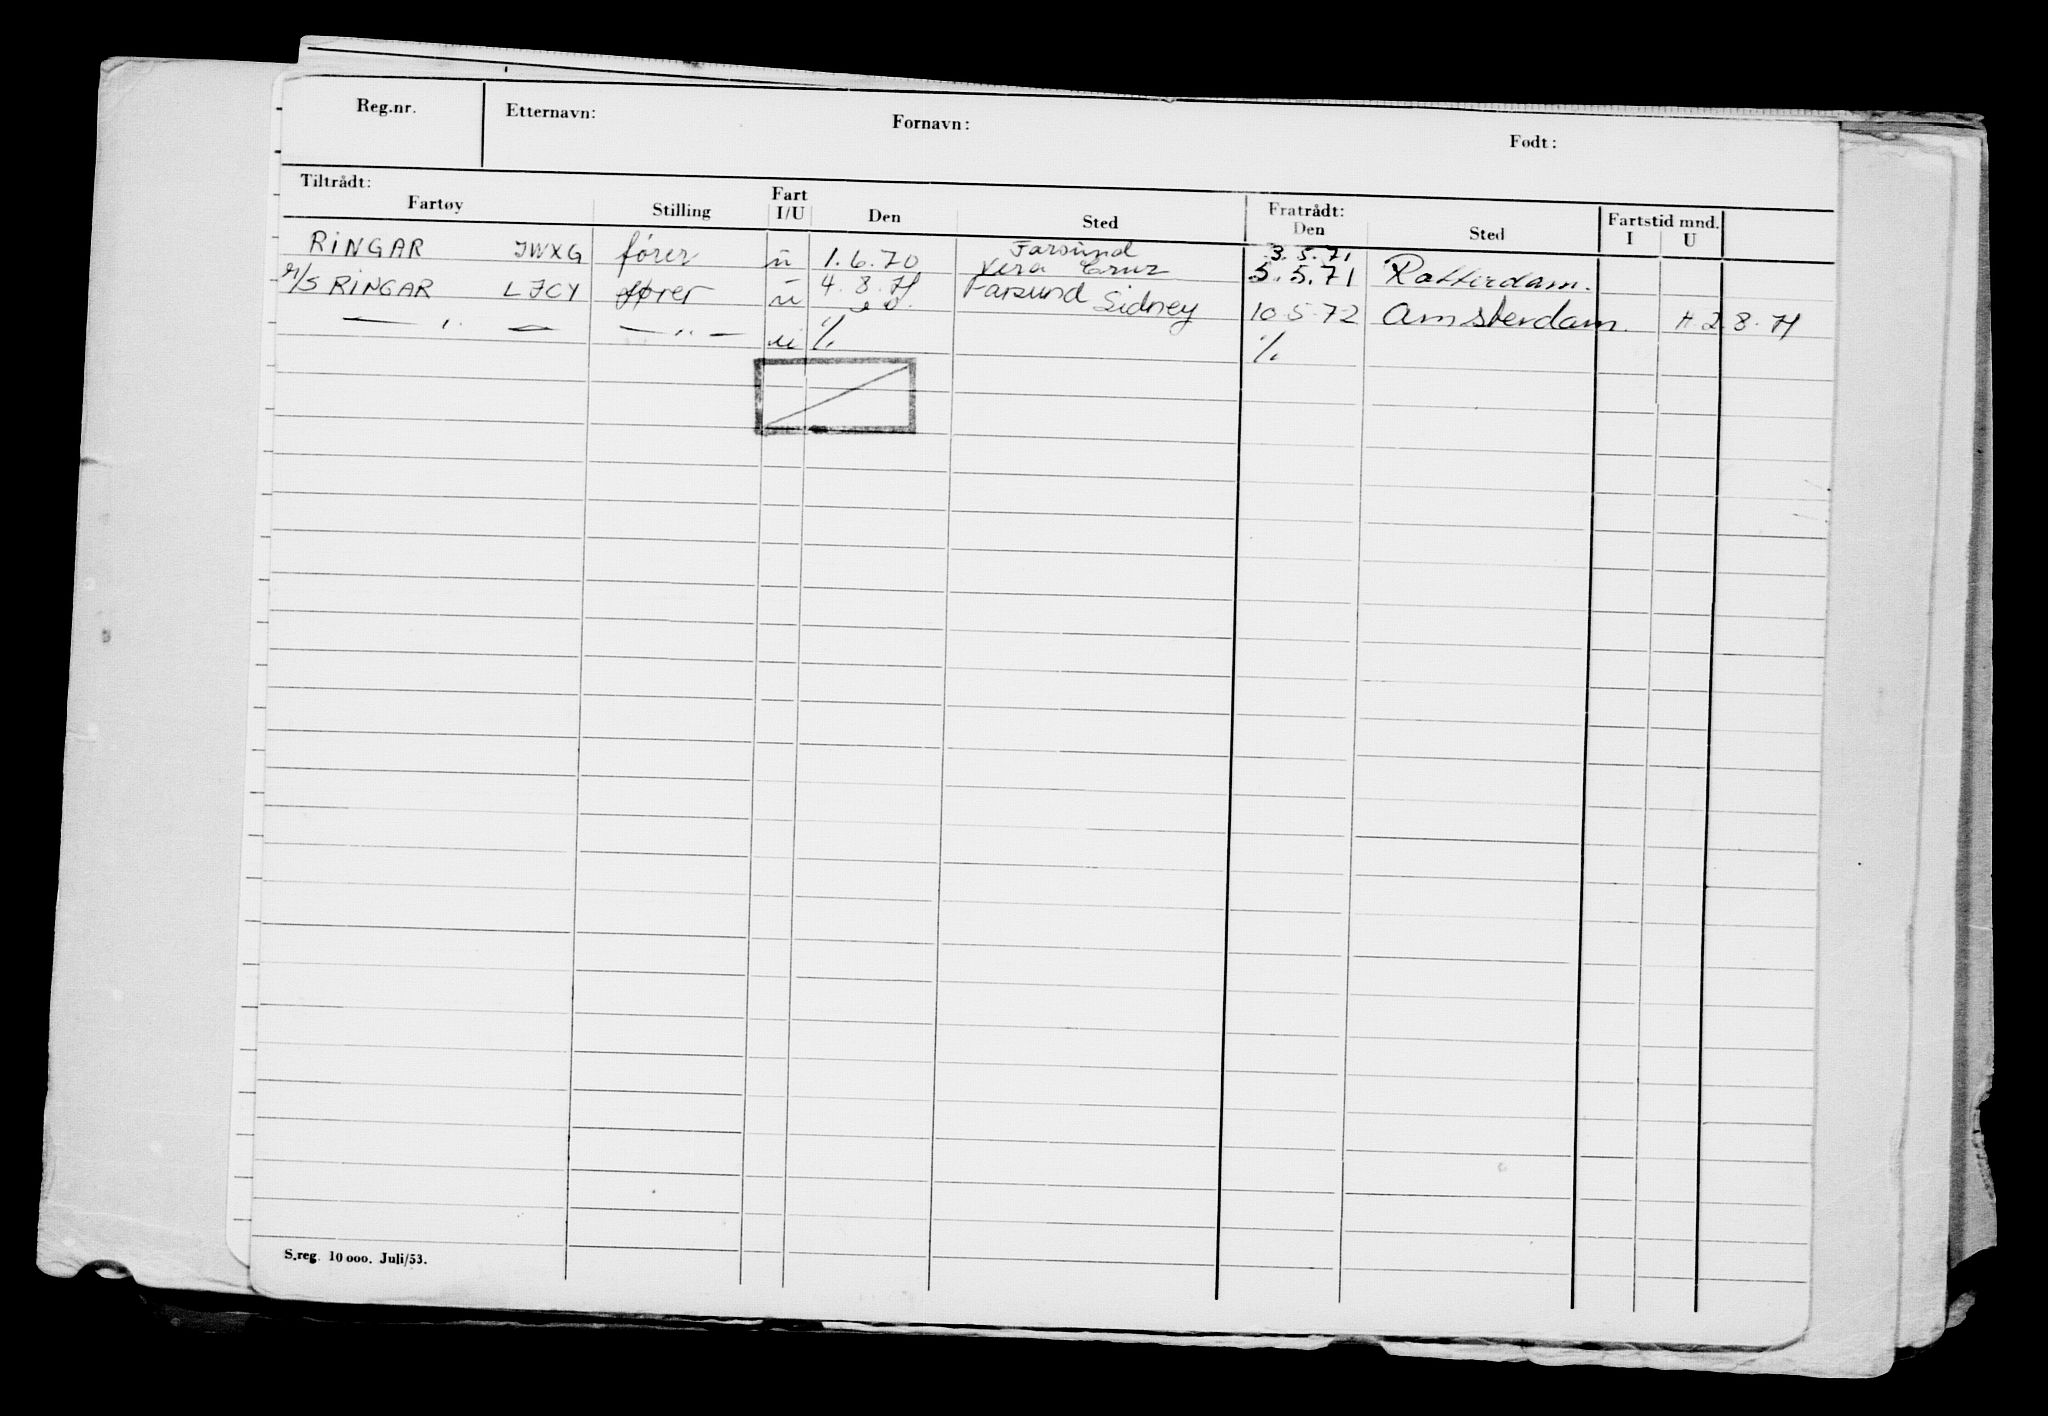 Reg.nr. Etternavn: Fornavn: Født:
Tiltrådt: Fratrådt:
Fartøy Stilling Fart I/U Den Sted Den Sted Fartstid mnd. I U
RINGAR JWXG fører u 1.6.70 Farsund 3.5.71
Vera Cruz 5.5.71 Rotterdam.
M/S RINGAR LJCY fører u 4.8.71 Farsund Sidney 10.5.72 Amsterdam. 2.8.71
— " — — " — u % %
S.reg. 10 000. Juli/53.